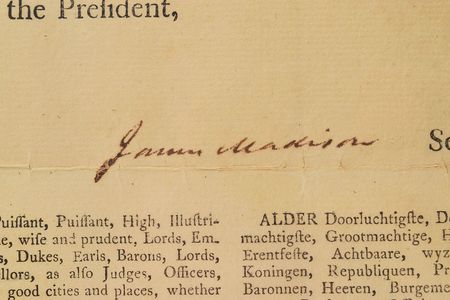 the Preſident,
James Madison
Se
Puiſſant, Puiſſant, High, Illuſtri-
e, wiſe and prudent, Lords, Em-
s, Dukes, Earls, Barons, Lords,
ellors, as alſo Judges, Officers,
good cities and places, whether
ALDER Doorluchtigſte, D
machtigſte, Grootmachtige, H
Erentfeſte, Achtbaare, wyz
Koningen, Republiquen, Pr
Baronnen, Heeren, Burgeme